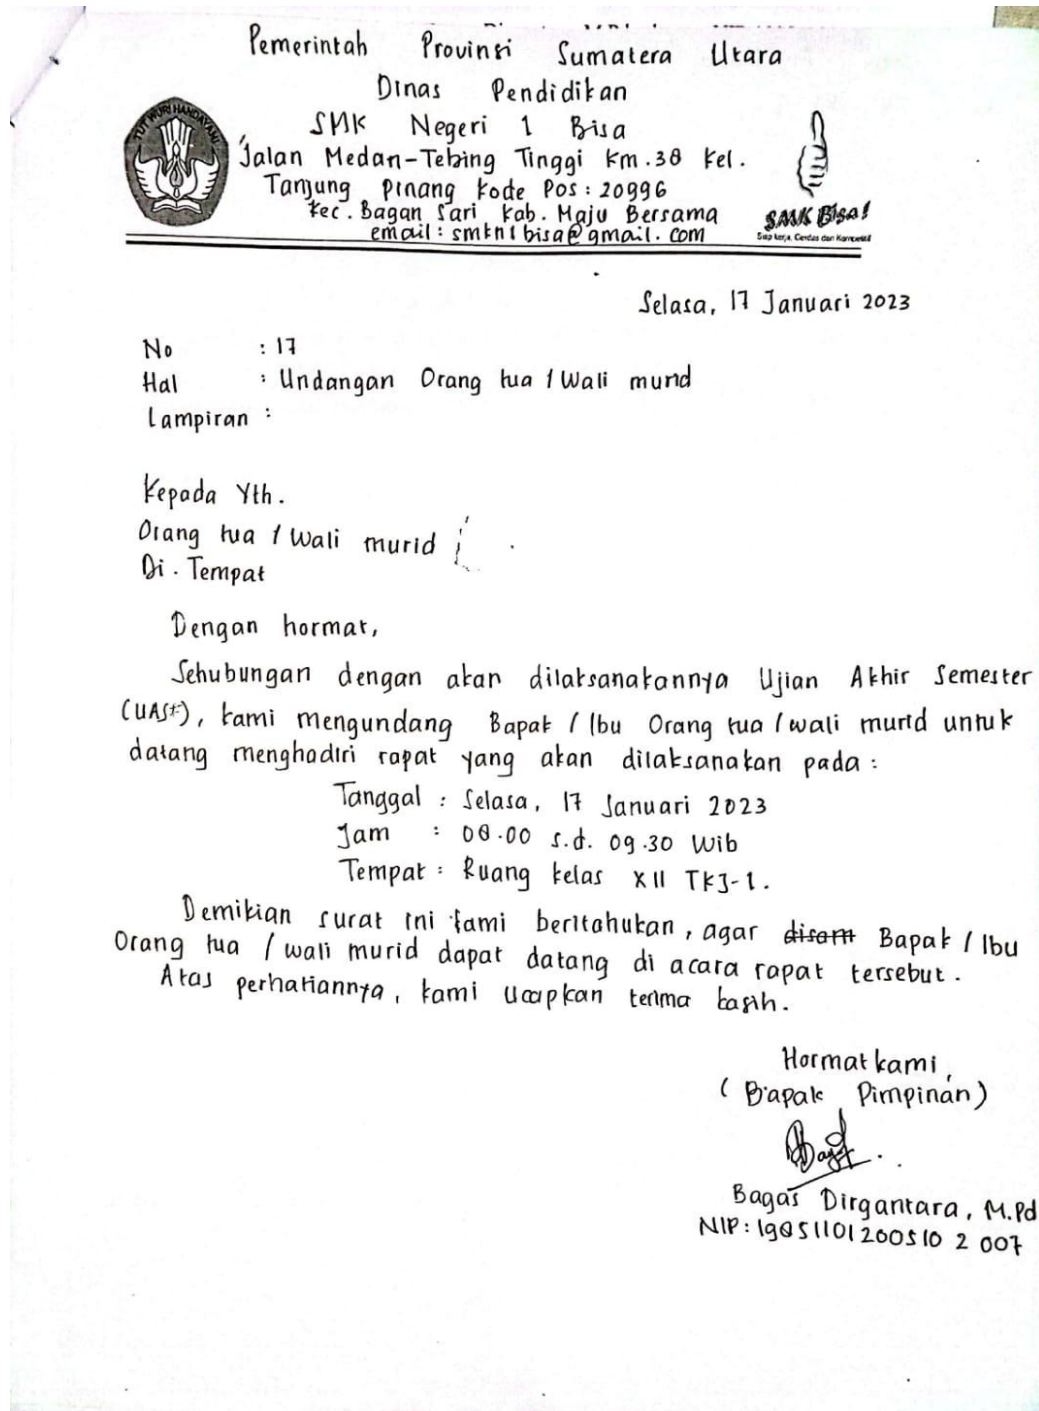 Pemerintah Provinsi Sumatera Utara
Dinas Pendidikan
SMK Negeri 1 Bisa
Jalan Medan-Tebing Tinggi Km.38 Kel.
Tanjung Pinang Kode Pos : 20996
Kec. Bagan Sari Kab. Maju Bersama
email : smkn1bisa@gmail.com
TUT WURI HANDAYANI
SMK Bisa!
Siap Kerja, Cerdas dan Kompetitif
Selasa, 17 Januari 2023
No : 17
Hal : Undangan Orang tua / Wali murid
Lampiran :
Kepada Yth.
Orang tua / Wali murid
Di. Tempat
Dengan hormat,
Sehubungan dengan akan dilaksanakannya Ujian Akhir Semester
(UAS), kami mengundang Bapak / Ibu Orang tua / wali murid untuk
datang menghadiri rapat yang akan dilaksanakan pada :
Tanggal : Selasa, 17 Januari 2023
Jam : 08.00 s.d. 09.30 Wib
Tempat : Ruang kelas XII TKJ-1.
Demikian surat ini kami beritahukan, agar Bapak / Ibu
Orang tua / wali murid dapat datang di acara rapat tersebut.
Atas perhatiannya, kami ucapkan terima kasih.
Hormat kami,
(Bapak Pimpinan)
Bagas Dirgantara, M.Pd
NIP : 19851101200510 2 007